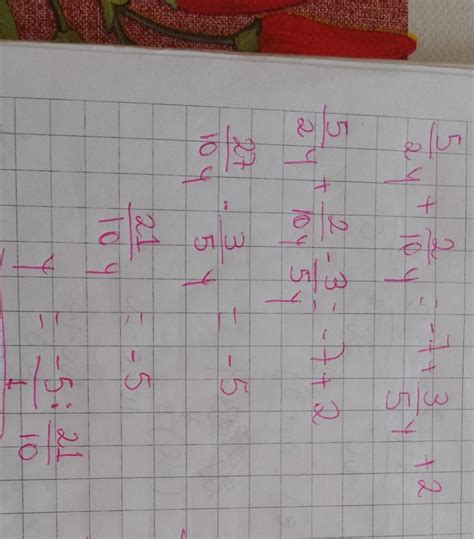 5/2 y + 2/10 y = -7 + 3/5 y + 2
5/2 y + 2/10 y - 3/5 y = -7 + 2
27/10 y - 3/5 y = -5
21/10 y = -5
y = -5/1 : 21/10